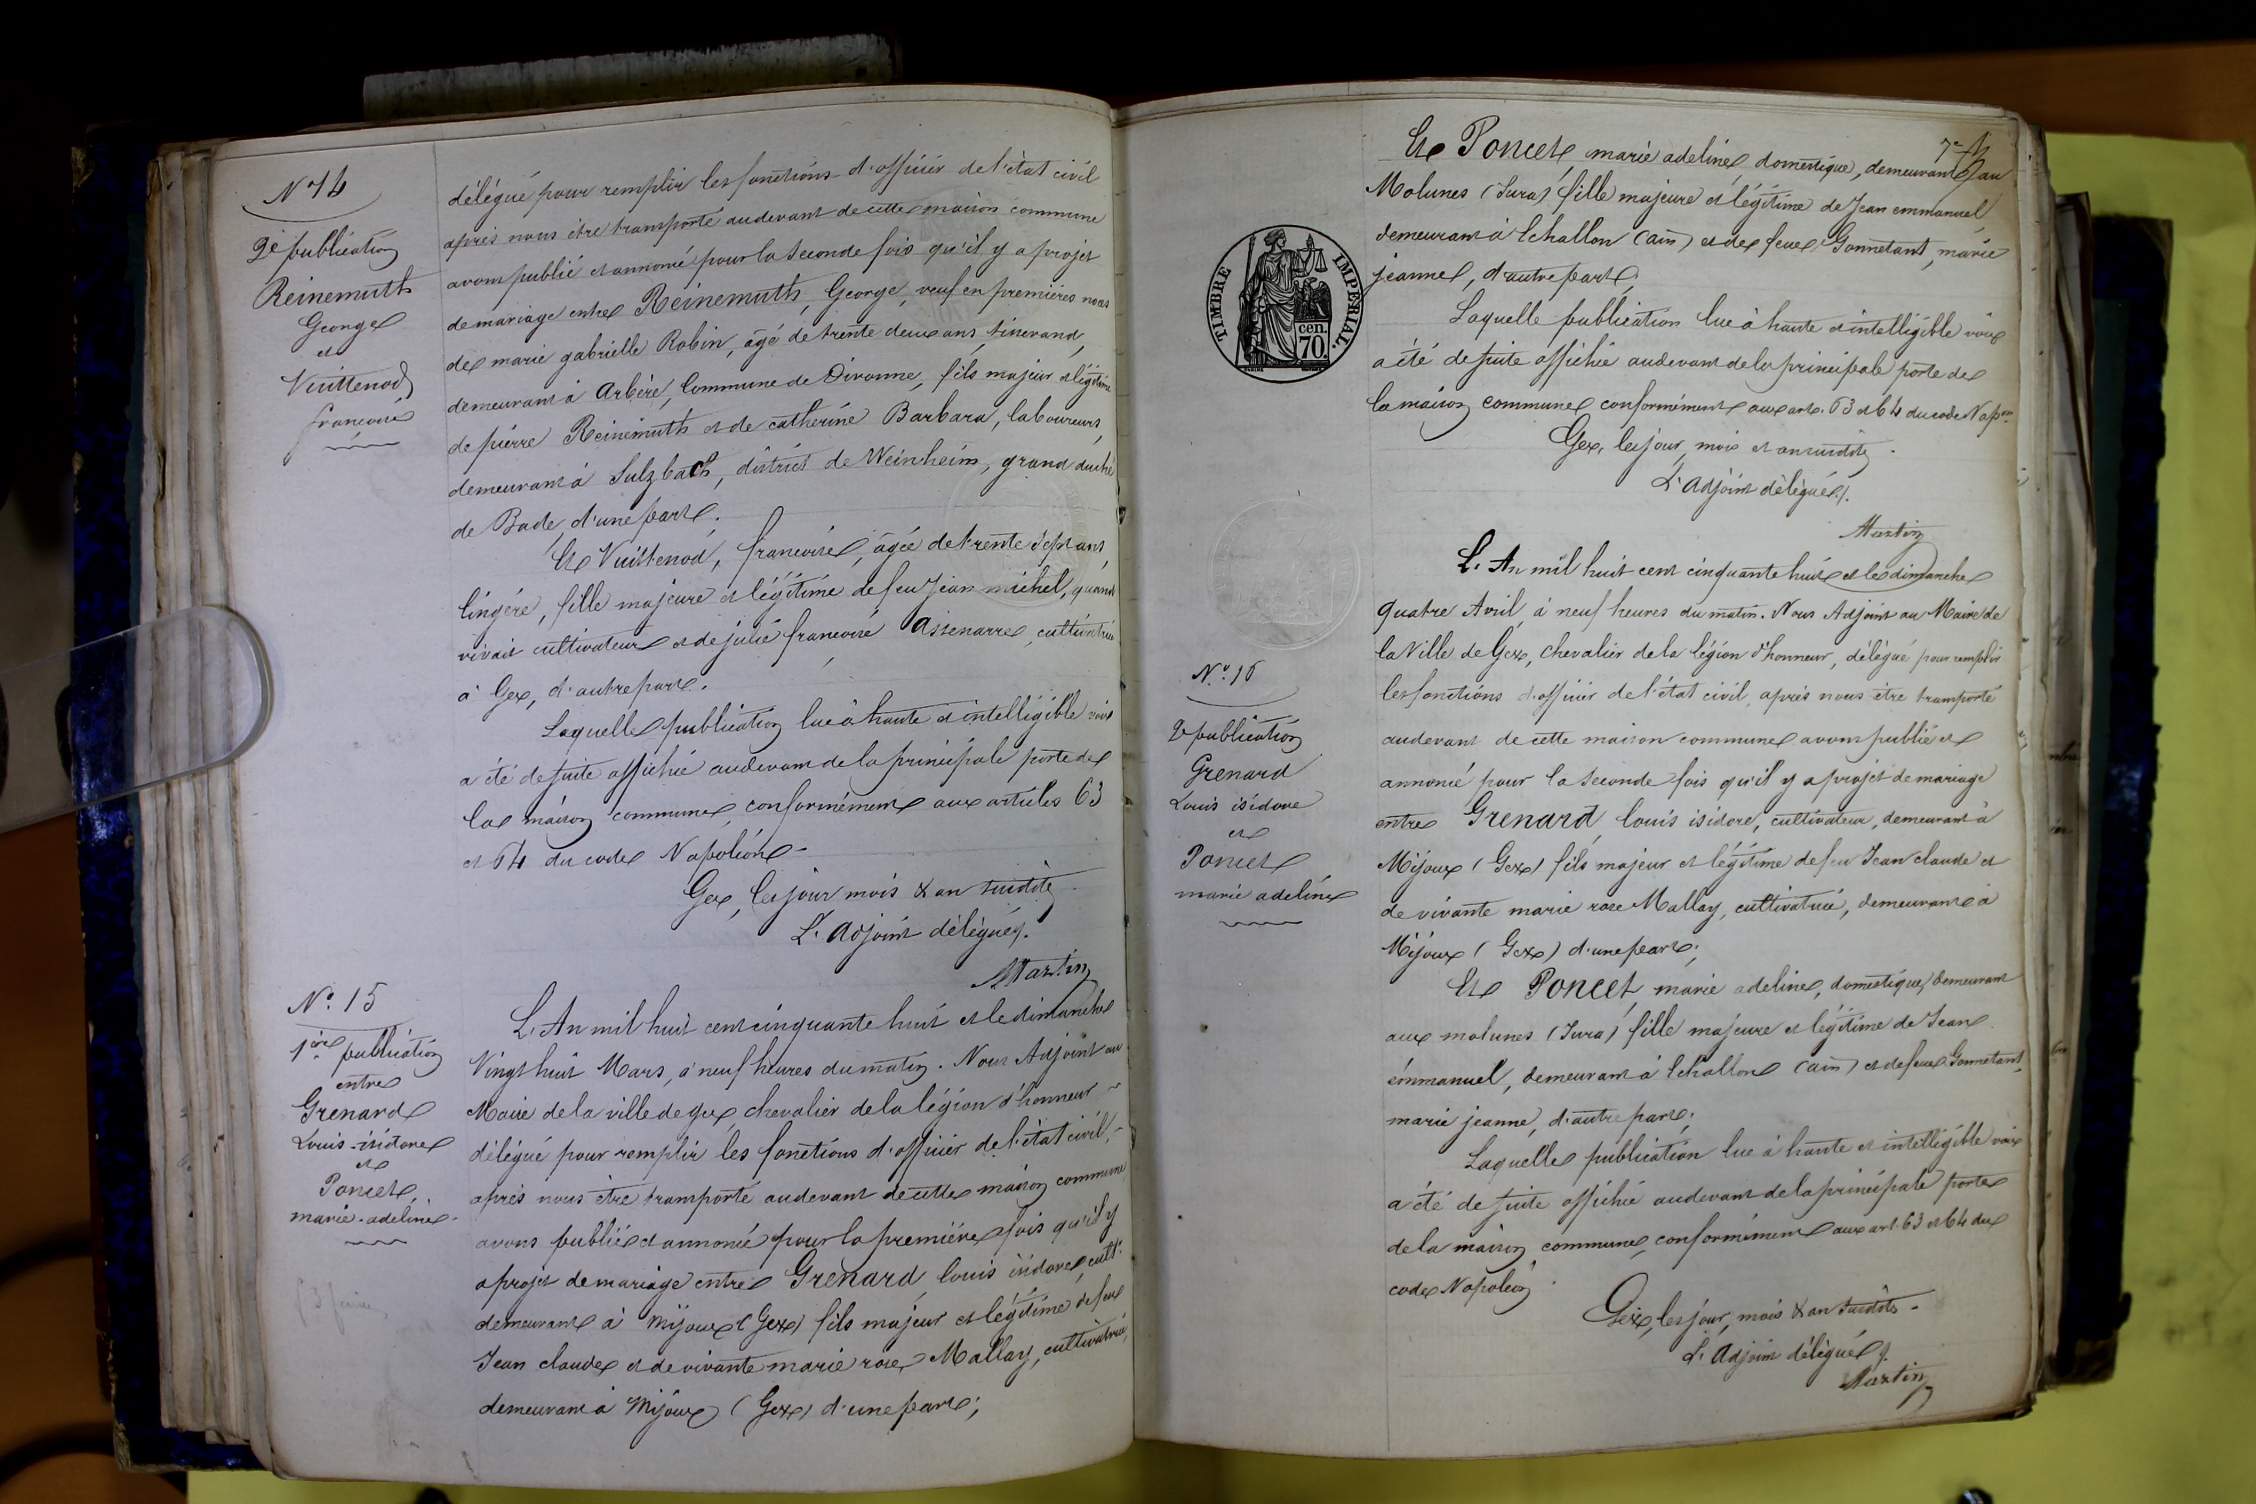 N° 14
2e publication
Reinemuth
George
et
Vuittenod
francoise
délégué pour remplir les fonctions d'officier de l'état civil
après nous être transporté audevant de cette maison commune
avons publié et annoncé pour la seconde fois qu'il y a projet
de mariage entre Reinemuth, George, veuf en premières noces
de marie gabrielle Robin, âgé de trente deux ans, tisserand,
demeurant à Arbère, Commune de Divonne, fils majeur et légitime
de pierre Reinemuth et de catherine Barbara, laboureurs,
demeurant à Sulzbach, district de Weinheim, grand duché
de Bade, d'une part.
Et Vuittenod, francoise, âgée de trente sept ans,
lingère, fille majeure et légitime de feu Jean michel, quand
vivait cultivateur et de julie francoise Assenarre, cultivatrice
à Gex, d'autre part.
Laquelle publication lue à haute et intelligible voix
a été de suite affichée audevant de la principale porte de
la maison commune, conformément aux articles 63
et 64 du code Napoléon
Gex, les jour mois & an susdits
L'Adjoint délégué.
Martin
N° 15
1ère publication
entre
Grenard
Louis-isidore
et
Poncet,
marie-adeline.
L'An mil huit cent cinquante huit et le dimanche
Vingt huit Mars, à neuf heures du matin. Nous Adjoint au
Maire de la ville de gex, chevalier de la légion d'honneur
délégué pour remplir les fonctions d'officier de l'état civil,
après nous être transporté audevant de cette maison commune
avons publié et annoncé pour la première fois qu'il y
a projet de mariage entre Grenard, louis isidore, cultr
demeurant à Mijoux (Gex) fils majeur et légitime de feu
Jean claude et de vivante marie rose Mallay, cultivatrice,
demeurant à Mijoux (Gex) d'une part;
Et Poncet, marie adeline, domestique, demeurant au
Molunes (Jura) fille majeure et légitime de Jean emmanuel,
demeurant à Echallon (ain) et de feue Gonnetant, marie
jeanne, d'autre part,
Laquelle publication lue à haute et intelligible voix
a été de suite affichée audevant de la principale porte de
la maison commune conformément aux arts. 63 et 64 du code Napon
Gex, les jour, mois et an susdits.
L'Adjoint délégué.
Martin
TIMBRE IMPERIAL.
cen.
70.
N° 16
2e publication
Grenard
Louis isidore
et
Poncet
marie adeline
L'An mil huit cent cinquante huit et le dimanche
quatre Avril, à neuf heures du matin. Nous Adjoint au Maire de
la Ville de Gex, chevalier de la légion d'honneur, délégué pour remplir
les fonctions d'officier de l'état civil, après nous être transporté
audevant de cette maison commune avons publié et
annoncé pour la seconde fois qu'il y a projet de mariage
entre Grenard, louis isidore, cultivateur, demeurant à
Mijoux (Gex) fils majeur et légitime de feu Jean claude et
de vivante marie rose Mallay, cultivatrice, demeurant à
Mijoux (Gex) d'une part;
Et Poncet, marie adeline, domestique, demeurant
aux molunes (Jura) fille majeure et légitime de Jean
émmanuel, demeurant à Echallon (ain) et de feue Gonnetant,
marie jeanne, d'autre part;
Laquelle publication lue à haute et intelligible voix
a été de suite affichée audevant de la principale porte
de la maison commune, conformément aux art. 63 et 64 du
code Napoléon.
Gex, les jour, mois & an susdits.
L'Adjoint délégué.
Martin